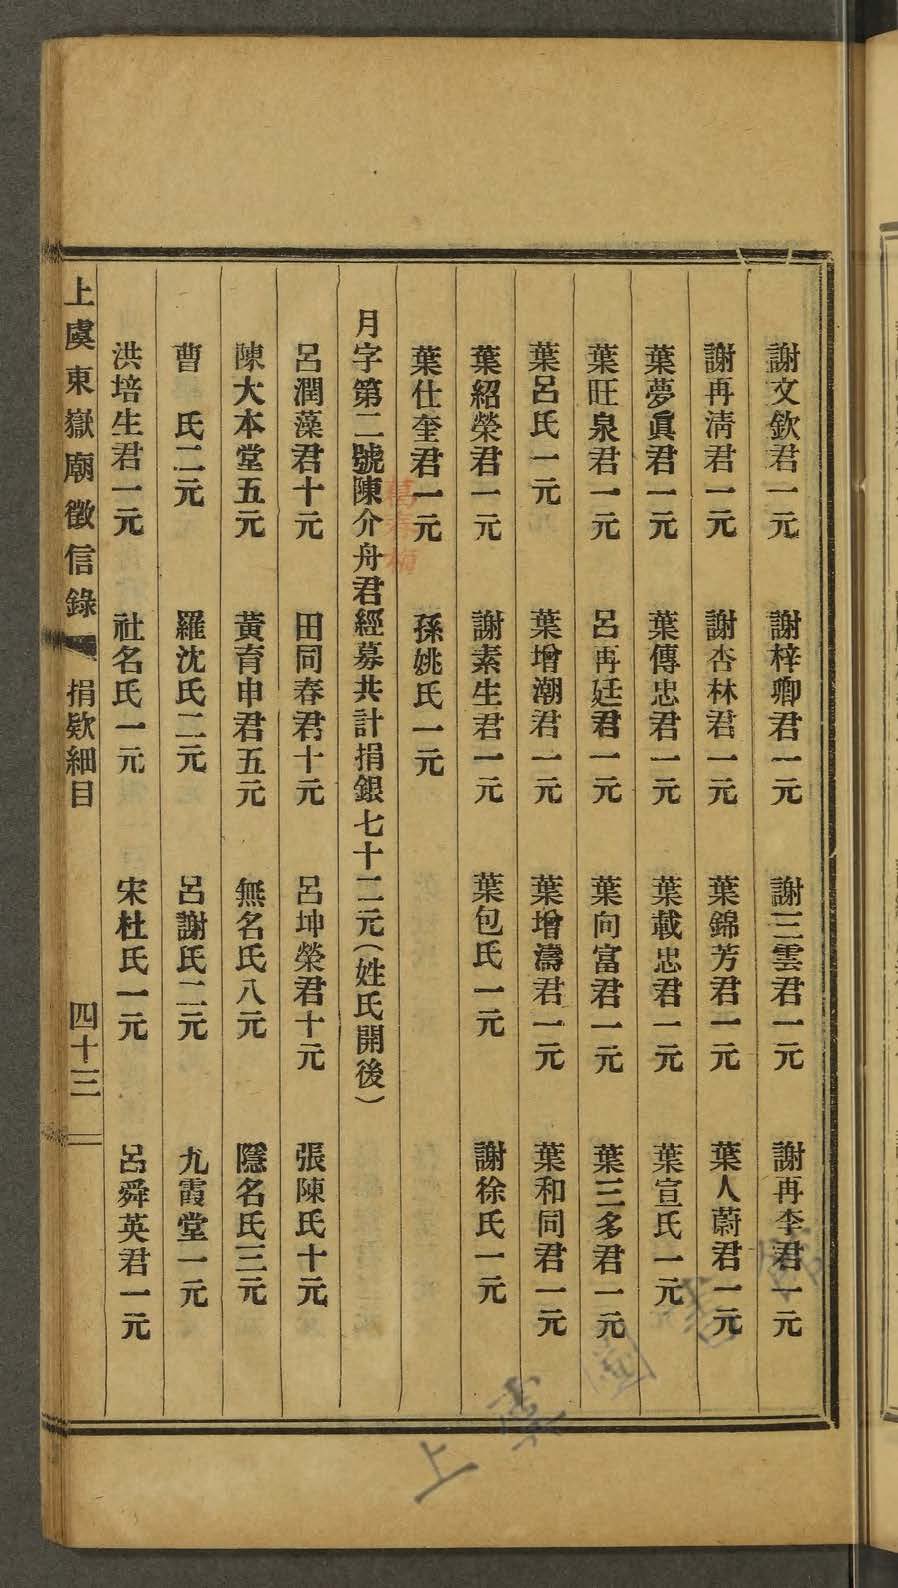 謝文欽君一元　謝梓卿君一元　謝三雲君一元　謝再李君一元
謝再淸君一元　謝杏林君一元　葉錦芳君一元　葉人蔚君一元
葉夢眞君一元　葉傳忠君一元　葉載忠君一元　葉宣氏一元
葉旺泉君一元　呂再廷君一元　葉向富君一元　葉三多君一元
葉呂氏一元　葉增潮君一元　葉增濤君一元　葉和同君一元
葉紹榮君一元　謝素生君一元　葉包氏一元　謝徐氏一元
葉仕奎君一元　孫姚氏一元
月字第二號陳介舟君經募共計捐銀七十二元(姓氏開後)
呂潤藻君十元　田同春君十元　呂坤榮君十元　張陳氏十元
陳大本堂五元　黃育申君五元　無名氏八元　隱名氏三元
曹　氏二元　羅沈氏二元　呂謝氏二元　九霞堂一元
洪培生君一元　社名氏一元　宋杜氏一元　呂舜英君一元
上虞東嶽廟徵信錄　捐欵細目　四十三
上虞圖書館